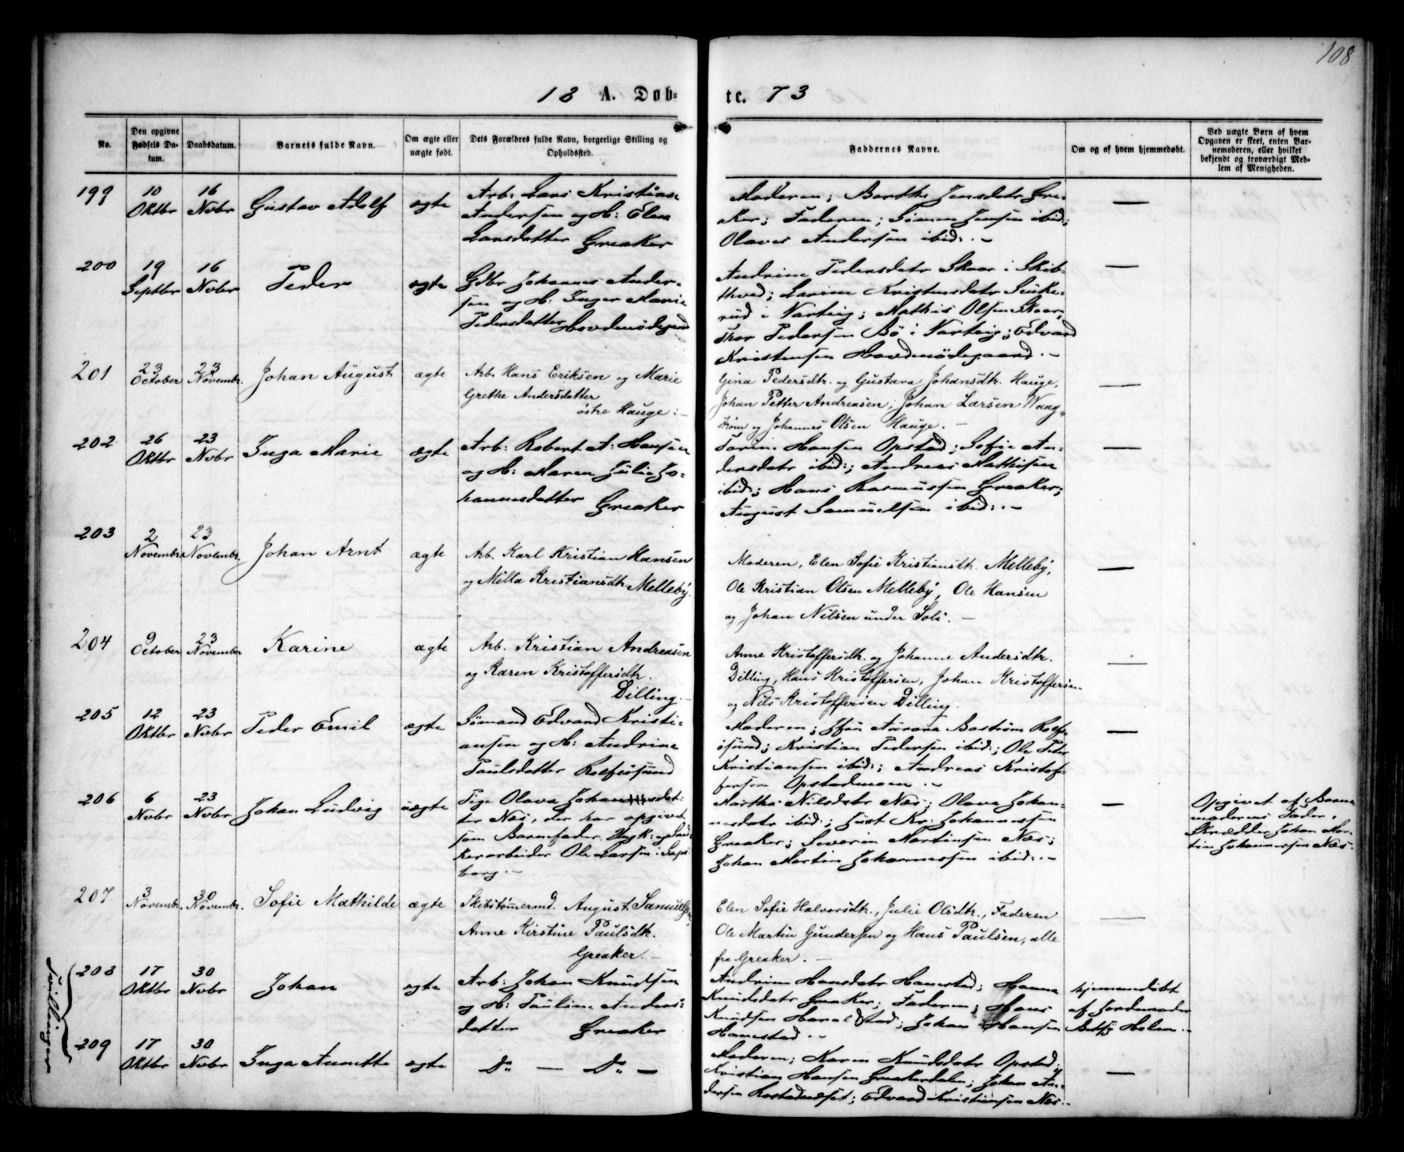 108
18 A. Døb- te. 73
No.
Den opgivne Fødsels Datum.
Daabsdatum.
Barnets fulde Navn.
Om ægte eller uægte født.
Dets Forældres fulde Navn, borgerlige Stilling og Opholdssted.
Faddernes Navne.
Om og af hvem hjemmedøbt.
Ved uægte Børn af hvem Opgaven er skeet, enten Barnemoderen, eller hvilket bekjendt og troværdigt Medlem af Menigheden.
199
10 Oktbr
16 Novbr
Gustav Adolf
ægte
Arb: Lars Kristian
Andersen og H: Elen
Larsdatter Greaker
Moderen; Berthe Jensdatr Grea-
ker; Faderen; Simen Jensen ibid;
Olaves Andersen ibid: -
—
200
19 Septbr
16 Novbr
Peder
ægte
Gdbr Johannes Ander-
sen og H: Inger Marie
Pedersdatter Hovdenødegaard
Andrine Pedersdatr Skaar i Skib-
thvedt; Karin Kristensdatr
rud i Varteig; Mathis Olsen Skaar,
Thor Pedersen Bø i Varteig; Edvard
Kristensen Hovdenødegaard. -
—
201
23 October
23 Novembr.
Johan August
ægte
Arb. Hans Eriksen og Marie
Grethe Andersdatter
østre Hauge: -
Gina Pedersdtr. og Gustava Johansdtr. Hauge,
Johan Petter Andreasen, Johan Larsen Waag-
og Johannes Olsen Hauge. -
—
202
26 Oktbr
23 Novbr
Inga Marie
ægte
Arb: Robert A. Hansen
og H: Maren Julie Jo-
hannesdatter Greaker
Hansen Opstad; Sofie An-
dersdatr ibid:; Andreas Mathisen
ibid:; Hans Rasmussen Greaker;
August Samuelsen ibid: -
—
203
2 Novembr.
23 Novembr.
Johan Arnt
ægte
Arb. Karl Kristian Hansen
og Milla Kristiansdtr. Melleby.
Moderen, Elen Sofie Kristiansdtr. Melleby,
Ole Kristian Olsen Melleby, Ole Hansen
og Johan Nilsen under Soli. -
—
204
9 October
23 November
Karine
ægte
Arb. Kristian Andreasen
og Karen Kristoffersdtr.
Dilling. -
Anne Kristoffersdtr. og Johanne Andersdtr.
Dilling, Hans Kristoffersen, Johan Kristoffersen
og Nils Kristoffersen Dilling.
—
205
12 Oktbr
23 Novbr
Peder Emil
ægte
Sømand Edvard Kristi-
ansen og H: Andrine
Paulsdatter Rolfsøsund
Moderen; Aurora Bostrøm Rolfs-
øsund; Kristian Pedersen ibid:; Ole Peter
Kristiansen ibid:; Andreas Kristof-
fersen Opstadmoen. -
—
206
6 Novbr
23 Novbr
Johan Ludvig
uægte
Pige Olava Johannesdat-
ter Næs, der har opgivet
som Barnefader Ugk: og Suk-
kerarbeider Ole Larsen i Sarps-
borg. -
Martha Nilsdatr Næs; Olave Johan-
nesdatr ibid:; Just Kr: Johannessen
Greaker; Severin Martinsen Næs;
Johan Martin Johannessen ibid: -
—
Opgivet af Barne-
moderens Fader,
Skrædder Johan Mar-
tin Johannessen Næs.
207
3 Novembr.
30 Novembr.
Sofie Mathilde
ægte
Skibstømermd. August Samuelsen,
Anne Kirstine Paulsdtr.
Greaker. -
Elen Sofie Halvorsdtr., Julie Olsdtr., Faderen
Ole Martin Gundersen og Hans Paulsen, alle
fra Greaker. -
—
Tvillinger
208
17 Oktbr
30 Novbr
Johan
ægte
Arb: Johan Knudsen
og H: Pauline Anders-
datter Greaker
Andrine Hansdatr Hanestad; Hanna
Knudsdatr Greaker; Faderen; Hans
Knudsen Haralstad; Johan Hansen
Hanestad. -
hjemmedøbt
af Jordemoder
Holm. -
209
17 Oktbr
30 Novbr
Inga Anette
ægte
Do — Do —
Moderen; Karen Knudsdatr Opstad,
Kristian Hansen Greakerdalen; Johan An-
dersen; Edvard Kristiansen Næs.
—